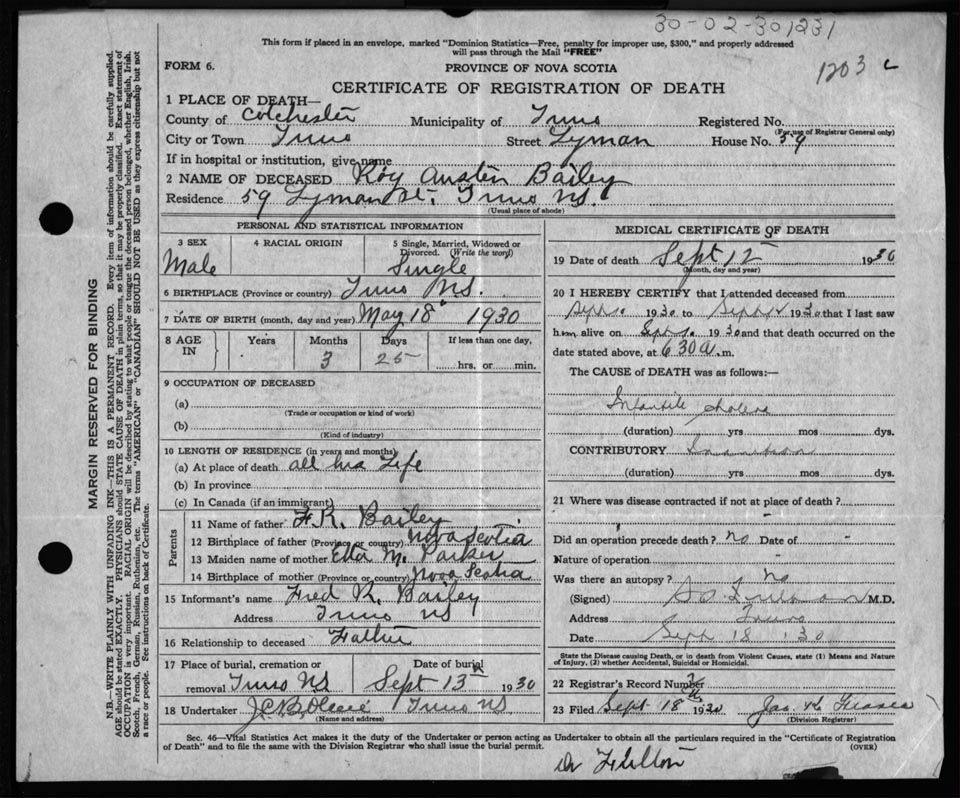 30-02-301231
This form if placed in an envelope, marked "Dominion Statistics—Free, penalty for improper use, $300," and properly addressed
will pass through the Mail "FREE"
FORM 6.
PROVINCE OF NOVA SCOTIA
1203 c
CERTIFICATE OF REGISTRATION OF DEATH
1 PLACE OF DEATH—
County of Colchester Municipality of Truro Registered No.
(For use of Registrar General only)
City or Town Truro Street Lyman House No. 59
If in hospital or institution, give name
2 NAME OF DECEASED Roy Austin Bailey
Residence 59 Lyman St. Truro NS.
(Usual place of abode)
PERSONAL AND STATISTICAL INFORMATION
3 SEX 4 RACIAL ORIGIN 5 Single, Married, Widowed or
Divorced. (Write the word)
Male Single
6 BIRTHPLACE (Province or country) Truro NS.
7 DATE OF BIRTH (month, day and year) May 18 1930
8 AGE IN Years Months Days If less than one day,
3 25 hrs. or min.
9 OCCUPATION OF DECEASED
(a)
(Trade or occupation or kind of work)
(b)
(Kind of industry)
10 LENGTH OF RESIDENCE (in years and months)
(a) At place of death all his Life
(b) In province
(c) In Canada (if an immigrant)
Parents
11 Name of father F.R. Bailey
12 Birthplace of father (Province or country) Nova Scotia
13 Maiden name of mother Etta M. Parker
14 Birthplace of mother (Province or country) Nova Scotia
15 Informant's name Fred R. Bailey
Address Truro NS
16 Relationship to deceased Father
17 Place of burial, cremation or Date of burial
removal Truro NS Sept 13 1930
18 Undertaker Truro NS
(Name and address)
MEDICAL CERTIFICATE OF DEATH
19 Date of death Sept 12 1930
(Month, day and year)
20 I HEREBY CERTIFY that I attended deceased from
1930 to 1930 that I last saw
him alive on Sept. 1930 and that death occurred on the
date stated above, at 6 30 a. m.
The CAUSE of DEATH was as follows:—
Infantile cholera
(duration) yrs mos dys.
CONTRIBUTORY
(duration) yrs mos dys.
21 Where was disease contracted if not at place of death?
Did an operation precede death? no Date of "
Nature of operation "
Was there an autopsy? no
(Signed) M.D.
Address Truro
Date Sept 18 30
State the Disease causing Death, or in death from Violent Causes, state (1) Means and Nature
of Injury, (2) whether Accidental, Suicidal or Homicidal.
22 Registrar's Record Number
23 Filed Sept 18th 1930
(Division Registrar)
Sec. 46—Vital Statistics Act makes it the duty of the Undertaker or person acting as Undertaker to obtain all the particulars required in the "Certificate of Registration
of Death" and to file the same with the Division Registrar who shall issue the burial permit.
(OVER)
Dr Fulton
MARGIN RESERVED FOR BINDING
N.B.—WRITE PLAINLY WITH UNFADING INK—THIS IS A PERMANENT RECORD. Every item of information should be carefully supplied.
AGE should be stated EXACTLY. PHYSICIANS should STATE CAUSE OF DEATH in plain terms, so that it may be properly classified. Exact statement of
OCCUPATION is very important. RACIAL ORIGIN will be described by stating to what people or tongue the deceased person belonged, whether English, Irish,
Scotch, French, German, Russian, Ruthenian, etc. The terms "AMERICAN" or "CANADIAN" SHOULD NOT BE USED as they express citizenship but not
a race or people. See instructions on back of Certificate.